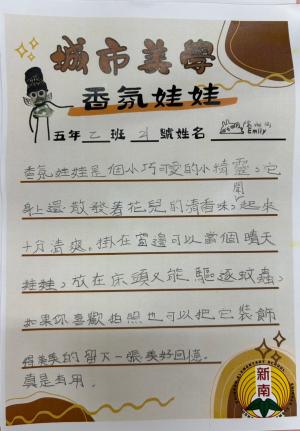 城市美學
香氛娃娃
五年乙班21號姓名
Emily
香氛娃娃是個小巧可愛的小精靈，它
身上還散發著花兒的清香味，聞起來
十分清爽，掛在窗邊可以當個晴天
娃娃，放在床頭又能驅逐蚊蟲，
如果你喜歡拍照也可以把它裝飾
得美美的留下一張美好回憶。
真是有用。
新南